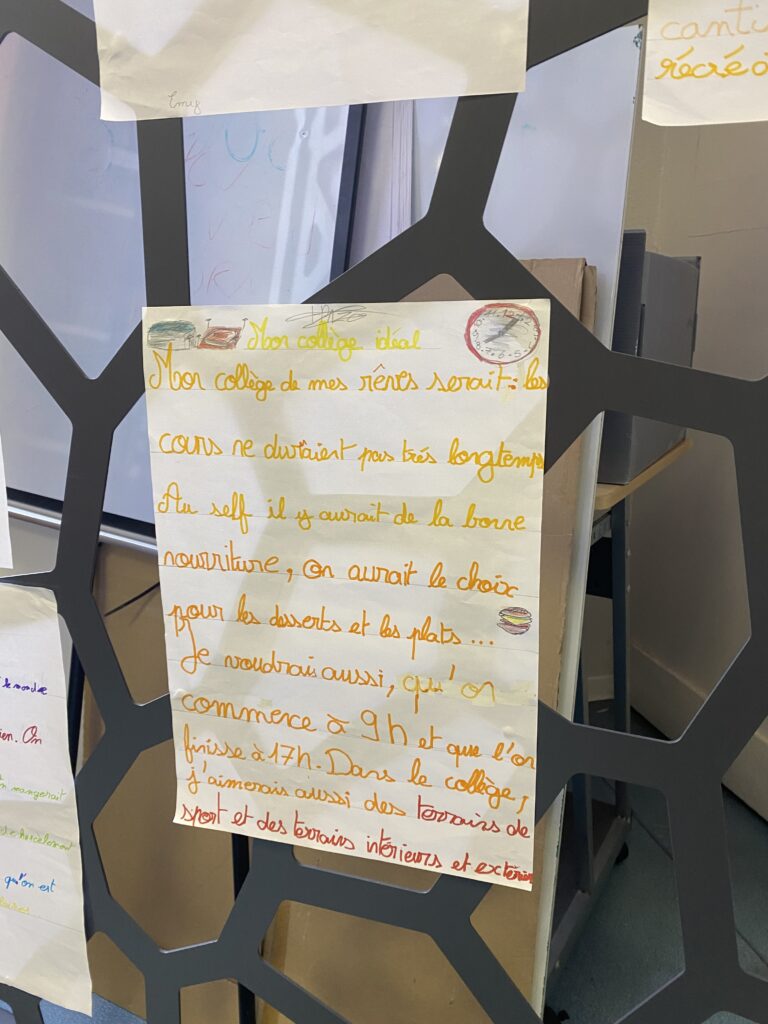 canti
récré à
Mon collège idéal
Mon collège de mes rêves serait: les
cours ne duraient pas trés longtemps
Au self il y aurait de la bonne
nourriture, on aurait le choix
pour les desserts et les plats ...
Je voudrais aussi, qu'on
commerce à 9h et que l'on
finisse à 17h. Dans le collège,
j'aimerais aussi des terrains de
sport et des terrains intérieurs et extérieu
le monde
ien. On
mangerait
harcelement
qu'on est